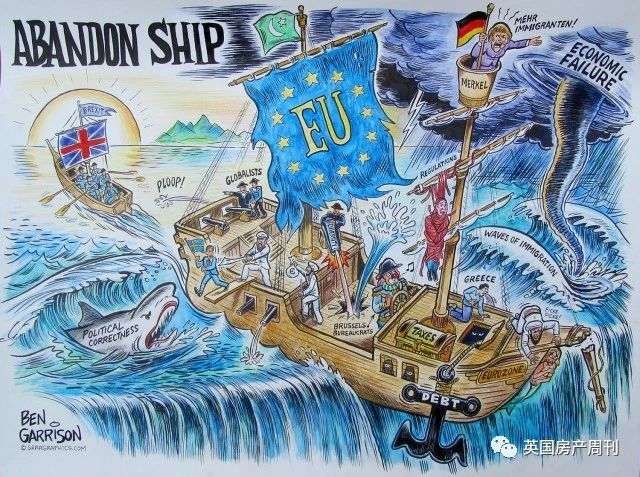 ABANDON SHIP
MEHR
IMMIGRANTEN!
MERKEL
ECONOMIC
FAILURE
BREXIT
EU
PLOOP!
GLOBALISTS
REGULATIONS
WAVES OF IMMIGRATION
GREECE
POLITICAL
CORRECTNESS
BRUSSELS
BUREAUCRATS
TAXES
EUROZONE
DEBT
BEN
GARRISON
© GRRRGRAPHICS.COM
英国房产周刊